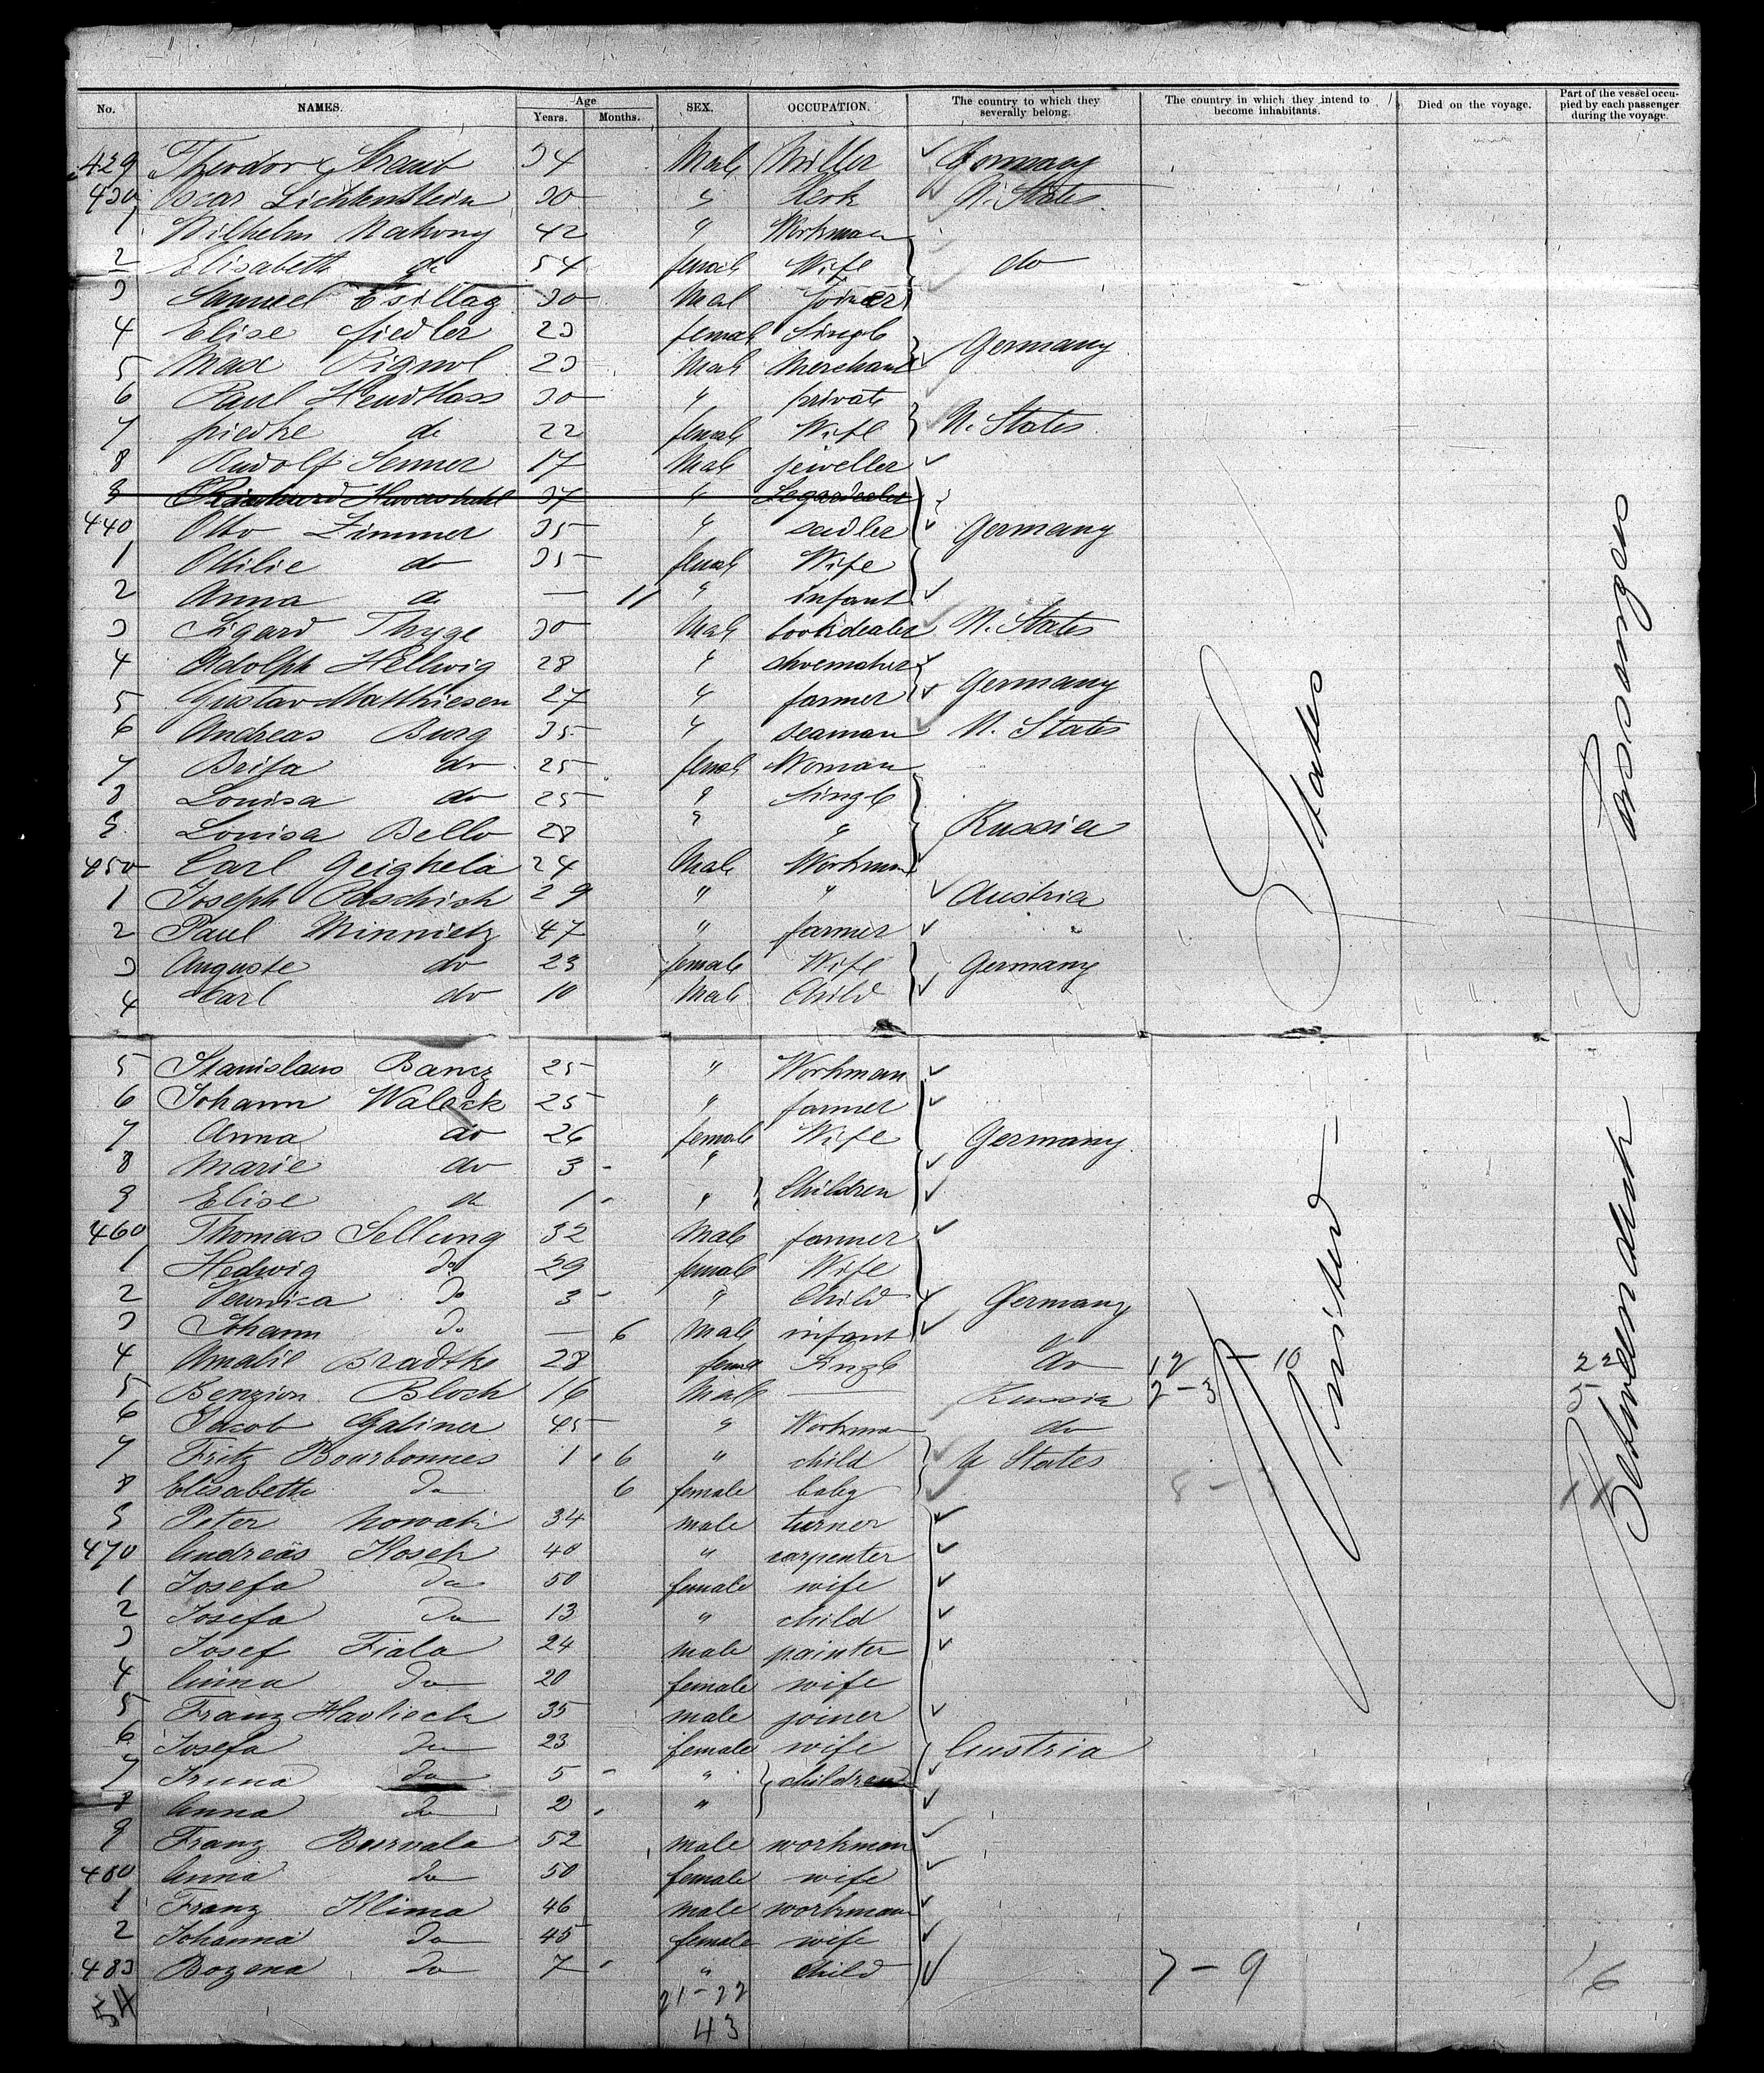 No. NAMES. Age Years. Months. SEX. OCCUPATION. The country to which they severally belong. The country in which they intend to become inhabitants. Died on the voyage. Part of the vessel occupied by each passenger during the voyage.
429 Theodor Straub 34 Male Miller Germany
430 Oscar Lichtenstein 30 " Clerk U. States
1 Wilhelm Mahony 42 " Workman
2 Elisabeth do 54 female Wife do
3 Samuel Csillag 30 Mal Joiner
4 Elise Fiedler 23 female Single Germany
5 Max Pignol 23 Male Merchant
6 Paul Hendlass 30 " private
7 do 22 female Wife U. States
8 Rudolf Senner 17 Male jeweller
9 37 "
440 Otto Zimmer 35 " sadler Germany
1 Ottilie do 35 female Wife
2 Anna do — 11 " infant
3 Sigard Thyge 30 Male bookdealer U. States
4 Adolph Hellwig 28 " shoemaker
5 Gustav Matthiesen 27 " farmer Germany
6 Andreas Burg 35 " seaman U. States
7 Brita do 25 female Woman
8 Louisa do 25 " Single
9 Louisa Bello 28 " " Russia
450 Carl Geighela 24 Male Workman
1 Joseph Paschich 29 " " Austria
2 Paul Minnietz 47 " farmer
3 Auguste do 23 female Wife Germany
4 Carl do 10 Male Child
5 Stanislaus Barcz 25 " Workman
6 Johann Waleck 25 " farmer
7 Anna do 26 female Wife Germany
8 Marie do 3 "
9 Elise do 1 " Children
460 Thomas Sellung 32 Male farmer
1 Hedwig do 29 female Wife
2 Veronica do 3 " Child Germany
3 Johann do — 6 Male infant
4 Amalie Bradtke 28 female Single do 12 - 10 22
5 Benzion Bloch 16 Male — Russia 2 - 3 5
6 Jacob Galiner 45 " Workman do
7 Fritz Bourbonnes 1 6 " child U States
8 Elisabeth do 6 female baby 8 -
9 Peter Nowak 34 male turner
470 Andreas Kosek 40 " carpenter
1 Josefa do 50 female wife
2 Josefa do 13 " child
3 Josef Fiala 24 male painter
4 Anna do 20 female wife
5 Franz Havlicek 35 male joiner
6 Josefa do 23 female wife Austria
7 do 5 " children
8 Anna do 2 "
9 Franz Burvala 52 male workman
480 Anna do 50 female wife
1 Franz Klima 46 male workman
2 Johanna do 45 female wife
483 Bozena do 7 " child 7 - 9 16
54 21-22
43
United States
Betweendeck Passengers